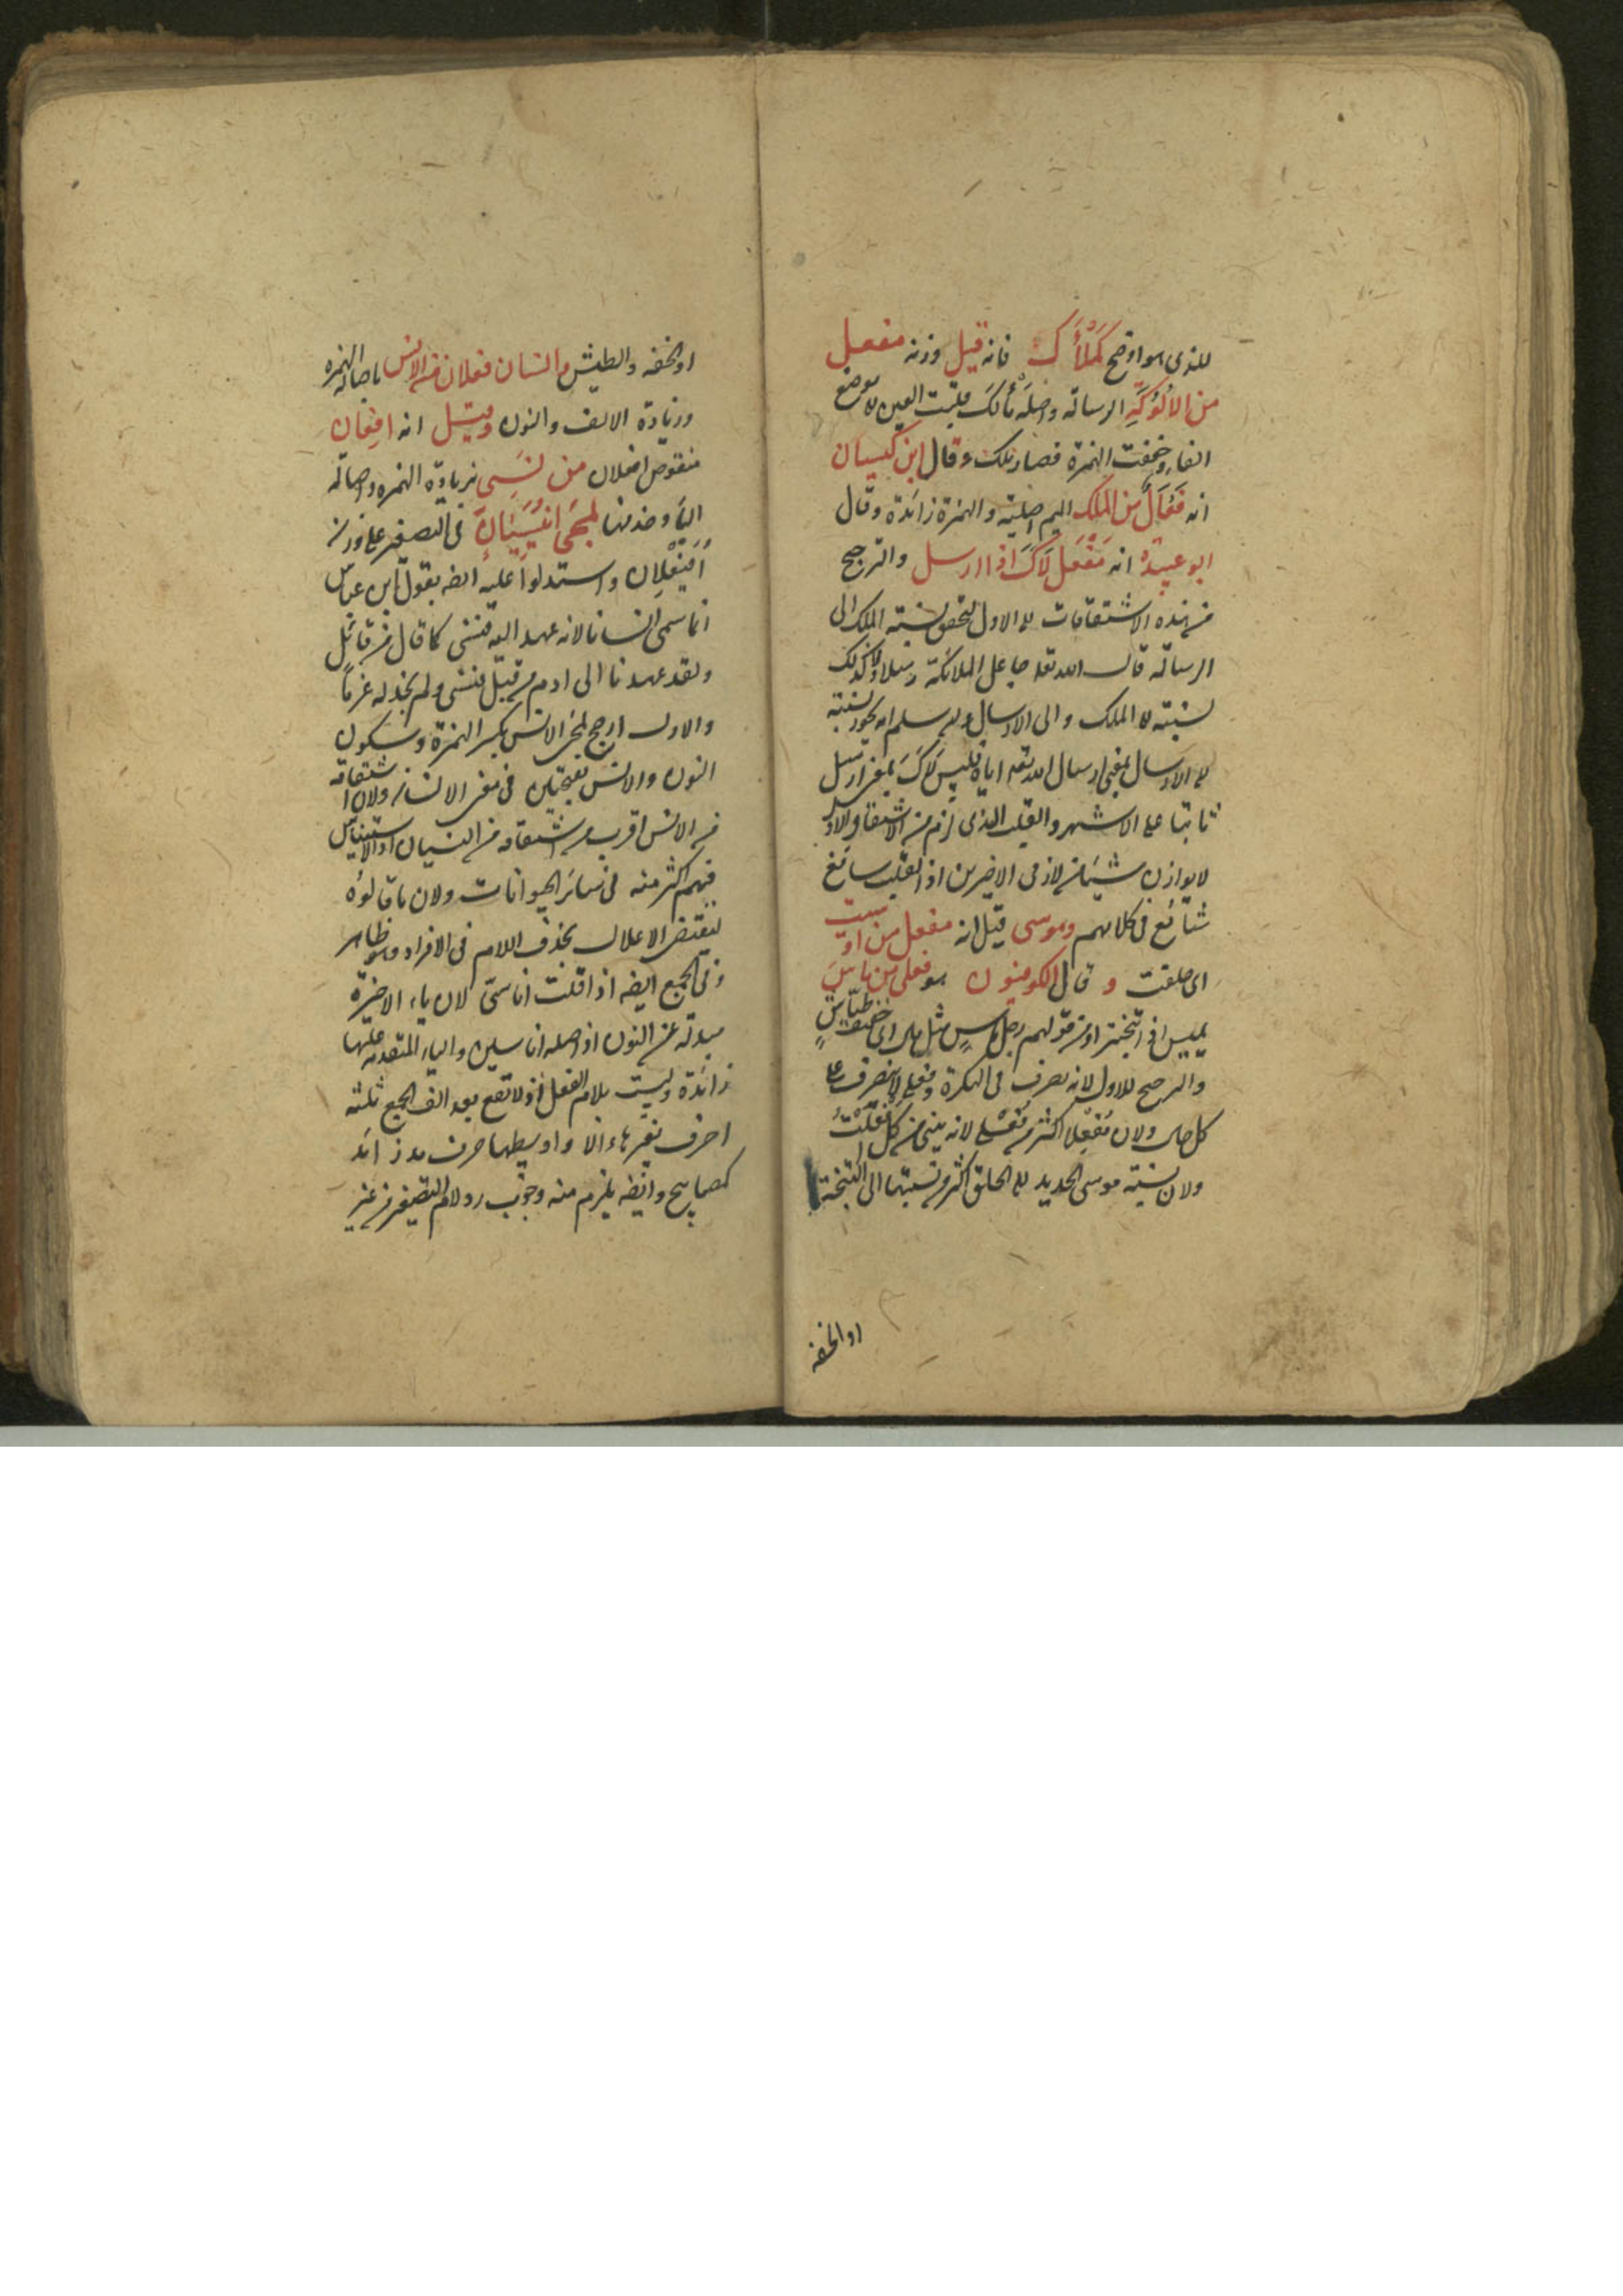 للذى هو اوضح كَمَلْأَكَ فانه قيل وزنه مفعل
من الاَلُوْكَةِ الرسالة واصله مَأْلَك قلبت العين لا موضع
الفاء وخففت الهمزة فصار ملك وقال ابن كيسان
انه فَعْأَل من المَلْك الميم اصلية والهمزة زائدة وقال
ابو عبيدة انه مَفْعَل لَأَكَ اذا ارسل والترجيح
من هذه الاشتقاقات للاول لتحقق نسبة الملك الى
الرسالة قال الله تعالى جاعل الملائكة رسلا ولا كذلك
نسبته لا الملك والى الارسال ولم سلم انه يجوز نسبته
الى الارسال بمعنى ارسال الله تعالى اياه فليس لأك بمعنى ارسل
ثابتا على الاشهر والقلب الذى لزم من الاشتقاق الاول
لا يوازن شيئا من لازمى الاخيرين اذ القلب سائغ
شائع فى كلامهم وموسى قيل انه مفعل من اوسيت
اى حلقت وقال الكوفيون هو فعلى من ماسَ
يميس اذا تبختر او من قولهم رجل ماسٍ مثل مال اى خفيف طيّاش
والترجيح للاول لانه يصرف فى النكرة وفعلى لا ينصرف على
كل حال ولان مُفْعِلا اكثر من فُعْلى لانه يبنى من كل افعلتُ
ولان نسبة موسى الحديد الى الحلق اكثر من نسبتها الى التبختر
او الخفة
او الخفة والطيش وانسان فعلان من الانس باصالة الهمزة
وزيادة الالف والنون وقيل انه افعان
منقوص افعلان من نَسِىَ بزيادة الهمزة واصالة
الياء وحذفها لمجئ اُنَيْسِيَانٍ فى التصغير على وزن
اُفَيْعِلان واستدلوا عليه ايضه بقول ابن عباس
انما سمى انسانا لانه عهد اليه فنسى كما قال من قائل
ولقد عهدنا الى ادم من قبل فنسى ولم نجد له عزماً
والاول ارجح لمجئ الانس بكسر الهمزة وسكون
النون والانس بفتحتين فى معنى الانسان ولان اشتقاقه
من الانس اقرب من اشتقاقه من النسيان اذ الاستيناس
فيهم اكثر منه فى سائر الحيوانات ولان ما قالوه
يقتضى الاعلال بحذف اللام فى الافراد وهو ظاهر
وفى الجمع ايضه اذا قلت اناسىّ لان ياء الاخيرة
مبدلة عن النون اذ اصله اناسين والياء المتقدمة عليها
زائدة وليست بلام الفعل اذ لا تقع بعد الف الجمع ثلثة
احرف بغير هاء الا واوسطها حرف مد زائد
كمصابيح وايضه يلزم منه وجوب رد لام التصغير من غير